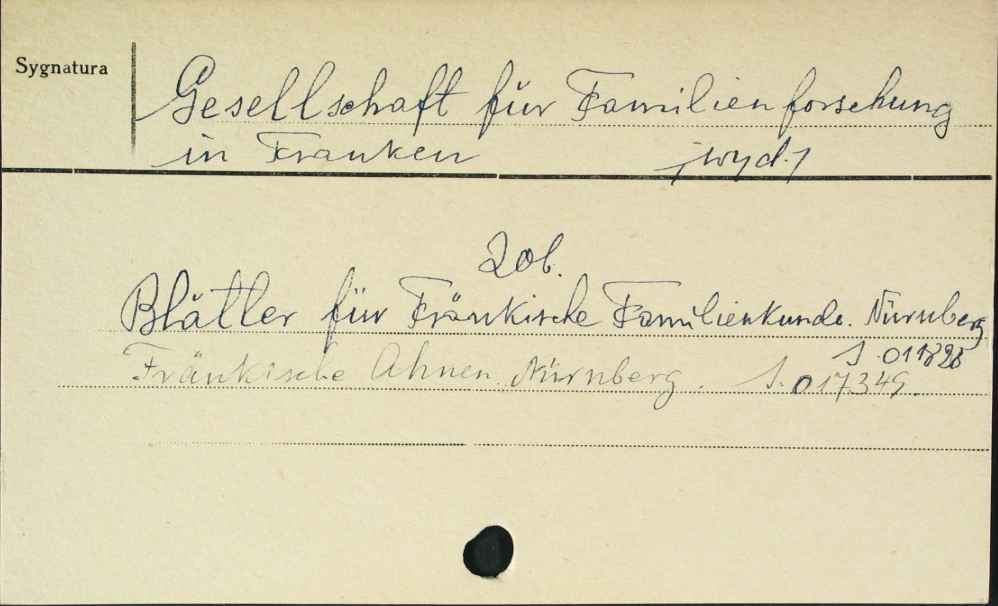 Sygnatura
Gesellschaft für Familienforschung
in Franken /wyd./
Zob.
Blätter für Fränkische Familienkunde. Nürnberg
Fränkische Ahnen. Nürnberg. S. 017349.